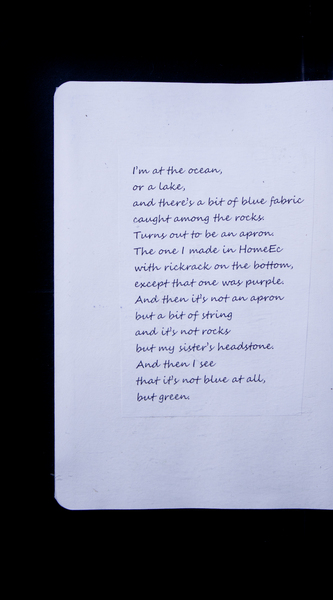 I'm at the ocean,
or a lake,
and there's a bit of blue fabric
caught among the rocks.
Turns out to be an apron.
The one I made in HomeEc
with rickrack on the bottom,
except that one was purple.
And then it's not an apron
but a bit of string
and it's not rocks
but my sister's headstone.
And then I see
that it's not blue at all,
but green.